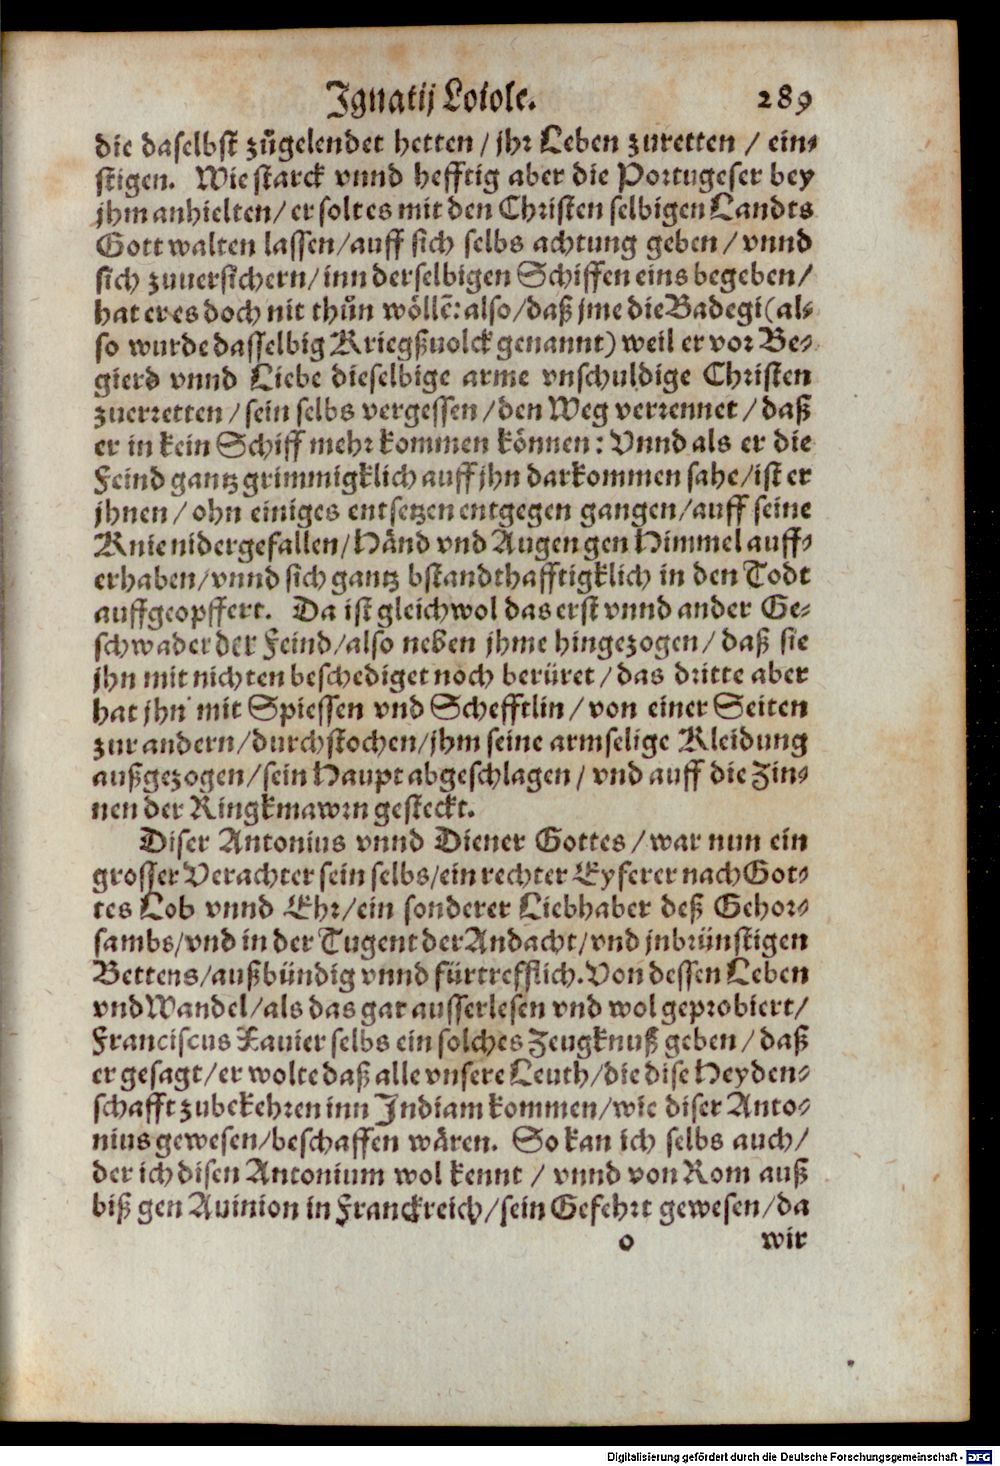 Ignatij Loiole. 289
die daselbst zůgelendet hetten / jhr Leben zuretten / ein-
stigen. Wie starck vnnd hefftig aber die Portugeser bey
jhm anhielten / er solt es mit den Christen selbigen Landts
Gott walten lassen / auff sich selbs achtung geben / vnnd
sich zuuersichern / inn derselbigen Schiffen eins begeben /
hat er es doch nit thůn wöllẽ: also / daß jme die Badegi (al-
so wurde dasselbig Kriegßuolck genannt) weil er vor Be-
gierd vnnd Liebe dieselbige arme vnschuldige Christen
zuerretten / sein selbs vergessen / den Weg verrennet / daß
er in kein Schiff mehr kommen können: Vnnd als er die
Feind gantz grimmigklich auff jhn darkommen sahe / ist er
jhnen / ohn einiges entsetzen entgegen gangen / auff seine
Knie nidergefallen / Händ vnd Augen gen Himmel auff-
erhaben / vnnd sich gantz bstandthafftigklich in den Todt
auffgeopffert. Da ist gleichwol das erst vnnd ander Ge-
schwader der Feind / also neben jhme hingezogen / daß sie
jhn mit nichten beschediget noch berüret / das dritte aber
hat jhn mit Spiessen vnd Schefftlin / von einer Seiten
zur andern / durchstochen / jhm seine armselige Kleidung
außgezogen / sein Haupt abgeschlagen / vnd auff die Zin-
nen der Ringkmawrn gesteckt.
Diser Antonius vnnd Diener Gottes / war nun ein
grosser Verachter sein selbs / ein rechter Eyferer nach Got-
tes Lob vnnd Ehr / ein sonderer Liebhaber deß Gehor-
sambs / vnd in der Tugent der Andacht / vnd jnbrünstigen
Bettens / außbündig vnnd fürtrefflich. Von dessen Leben
vnd Wandel / als das gar ausserlesen vnd wol geprobiert /
Franciscus Xauier selbs ein solches Zeugknuß geben / daß
er gesagt / er wolte daß alle vnsere Leuth / die dise Heyden-
schafft zubekehren inn Indiam kommen / wie diser Anto-
nius gewesen / beschaffen wären. So kan ich selbs auch /
der ich disen Antonium wol kennt / vnnd von Rom auß
biß gen Auinion in Franckreich / sein Gefehrt gewesen / da
o wir
Digitalisierung gefördert durch die Deutsche Forschungsgemeinschaft - DFG